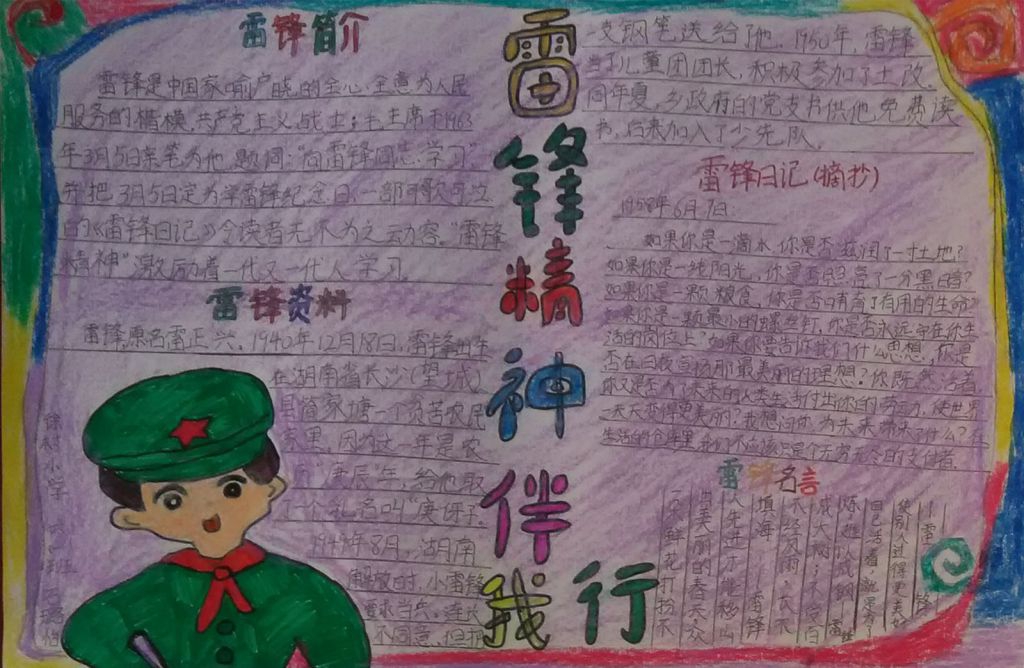 雷锋简介
雷锋是中国家喻户晓的全心全意为人民
服务的楷模,共产党主义战士;毛主席于1963
年3月5日亲笔为他题词:"向雷锋同志学习"
并把3月5日定为学雷锋纪念日,一部可歌可泣
的《雷锋日记》令读者无不为之动容。"雷锋
精神"激励着一代又一代人学习。
雷锋资料
雷锋,原名雷正兴,1940年12月18日,雷锋出生
在湖南省长沙(望城)
县简家塘一个贫苦农民
家里,因为这一年是农
历"庚辰"年,给他取
了个乳名叫"庚伢子。
1949年8月,湖南
解放时,小雷锋
要求当兵,连长
不同意,但把
雷锋精神伴我行
一支钢笔送给了他。1950年,雷锋
当了儿童团团长,积极参加了土改。
同年夏,乡政府的党支书供他免费读
书,后来加入了少先队。
雷锋日记(摘抄)
1958年6月7日:
如果你是一滴水,你是否滋润了一寸土地?
如果你是一线阳光,你是否照亮了一分黑暗?
如果你是一颗粮食,你是否哺育了有用的生命?
如果你是一颗最小的螺丝钉,你是否永远守在你生
活的岗位上?如果你要告诉我们什么思想,你是
否在日夜宣扬那最美丽的理想?你既然活着
你又是否为了未来的人类生活付出你的劳动,使世界
一天天变得更美丽?我想问你,为未来带来了什么?在
生活的仓库里,我们不应该只是个无穷无尽的支付者。
雷锋名言
自己活着,就是为了
使别人过得更美好
——雷锋
炼,难以成钢——雷锋
不经风雨,长不
成大树;不受百
填海——雷锋
人先进才能移山
美丽的春天,众
一朵鲜花打扮不
徐村小学